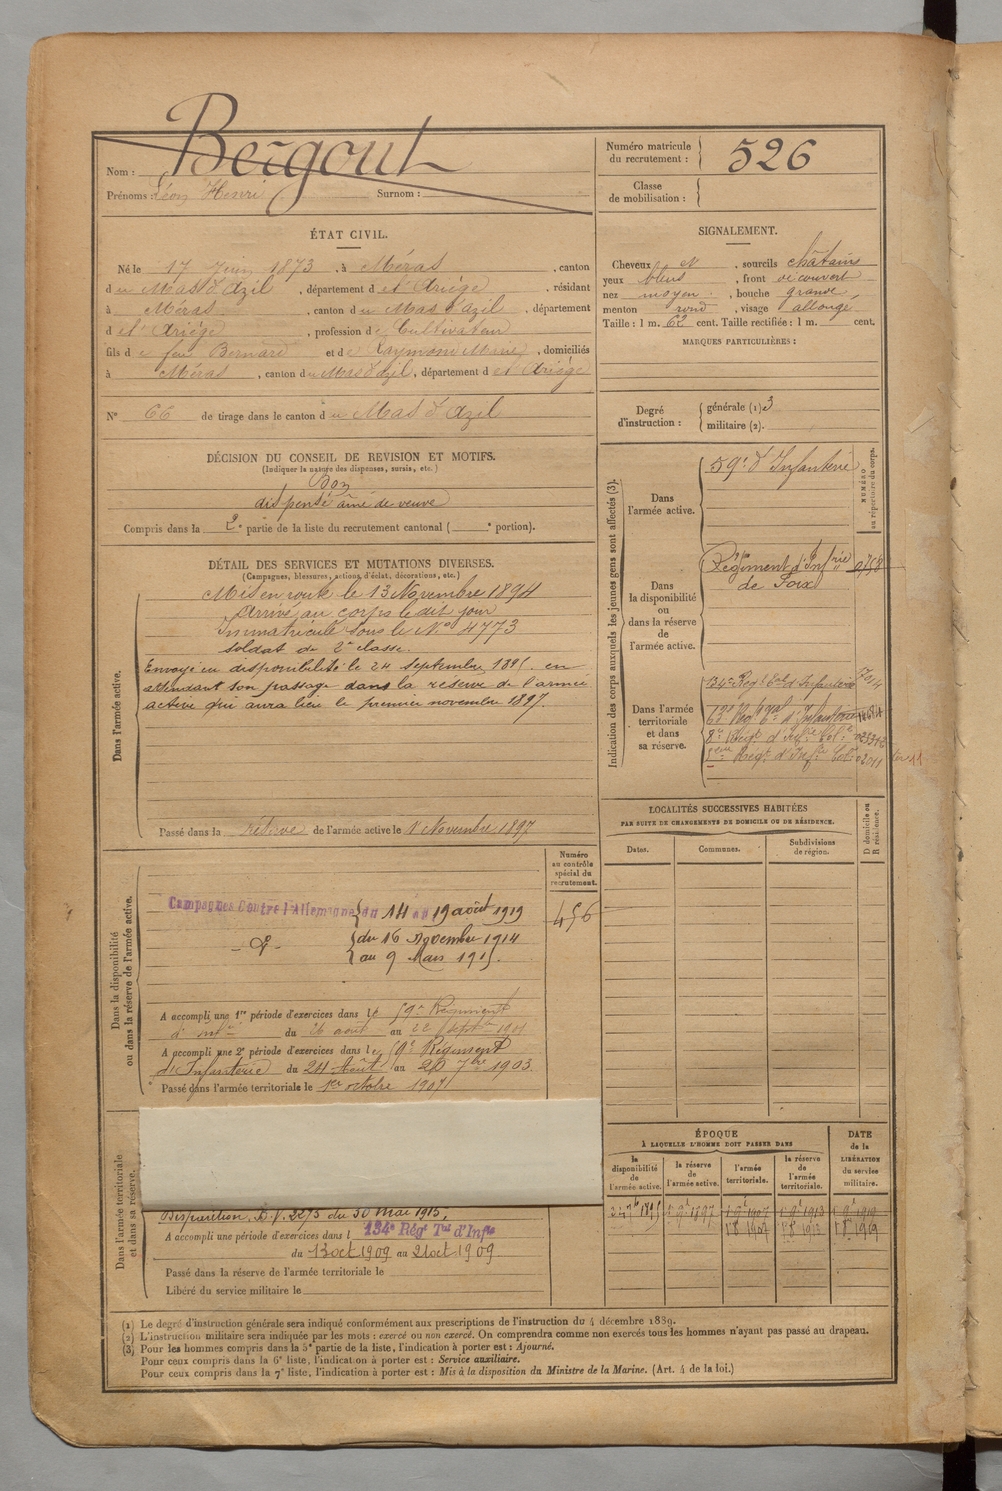 Nom : Bergout
Prénoms : Léon Henri Surnom :
Numéro matricule du recrutement : 526
Classe de mobilisation :
ÉTAT CIVIL.
Né le 17 Juin 1873, à Méras, canton
du Mas d'Azil, département de l'Ariège, résidant
à Méras, canton du Mas d'Azil, département
de l'Ariège, profession de Cultivateur
fils de feu Bernard et de Raymond Marie, domiciliés
à Méras, canton du Mas d'Azil, département de l'Ariège
N° 66 de tirage dans le canton du Mas d'Azil
SIGNALEMENT.
Cheveux et, sourcils châtains
yeux bleus, front découvert
nez moyen, bouche grande
menton rond, visage allongé
Taille : 1 m. 62 cent. Taille rectifiée : 1 m. cent.
MARQUES PARTICULIÈRES :
Degré d'instruction : générale (1) 3
militaire (2).
DÉCISION DU CONSEIL DE REVISION ET MOTIFS.
(Indiquer la nature des dispenses, sursis, etc.)
Bon
dispensé aîné de veuve
Compris dans la 2e partie de la liste du recrutement cantonal ( e portion).
DÉTAIL DES SERVICES ET MUTATIONS DIVERSES.
(Campagnes, blessures, actions d'éclat, décorations, etc.)
Dans l'armée active.
Mis en route le 13 Novembre 1894
Arrivé au corps le dit jour
Immatriculé sous le N° 4773
soldat de 2e classe.
Envoyé en disponibilité le 24 septembre 1895 en
attendant son passage dans la réserve de l'armée
active qui aura lieu le premier novembre 1897.
Passé dans la réserve de l'armée active le 1 Novembre 1897
Indication des corps auxquels les jeunes gens sont affectés (3).
NUMÉRO au répertoire du corps.
Dans l'armée active.
59e d'Infanterie
Dans la disponibilité ou dans la réserve de l'armée active.
Régiment d'Infrie
de Foix
Dans l'armée territoriale et dans sa réserve.
134e Régt tal d'Infanterie
8e Régt d'Infie Col.e
1er Régt d'Infie Col.
LOCALITÉS SUCCESSIVES HABITÉES
PAR SUITE DE CHANGEMENTS DE DOMICILE OU DE RÉSIDENCE.
D domicile ou R résidence.
Dates.
Communes.
Subdivisions de région.
Dans la disponibilité ou dans la réserve de l'armée active.
Numéro au contrôle spécial du recrutement.
456
Campagnes Contre l'Allemagne du 14 au 19 août 1919
du 16 novembre 1914
au 9 Mars 1915.
A accompli une 1re période d'exercices dans le 59e Régiment
d'Infie du 26 août au 22 septbre 1901
A accompli une 2e période d'exercices dans le 59e Régiment
d'Infanterie du 24 Août au 20 7bre 1903
Passé dans l'armée territoriale le 1er octobre 1907
Dans l'armée territoriale et dans sa réserve.
Disparition. D.V. 2275 du 30 Mai 1915,
A accompli une période d'exercices dans l 134e Régt Tal d'Infie
du 13 oct 1909 au 21 oct 1909
Passé dans la réserve de l'armée territoriale le
Libéré du service militaire le
ÉPOQUE
À LAQUELLE L'HOMME DOIT PASSER DANS
la disponibilité de l'armée active.
la réserve de l'armée active.
l'armée territoriale.
la réserve de l'armée territoriale.
DATE de la LIBÉRATION du service militaire.
(1) Le degré d'instruction générale sera indiqué conformément aux prescriptions de l'instruction du 4 décembre 1889.
(2) L'instruction militaire sera indiquée par les mots : exercé ou non exercé. On comprendra comme non exercés tous les hommes n'ayant pas passé au drapeau.
(3) Pour les hommes compris dans la 5e partie de la liste, l'indication à porter est : Ajourné.
Pour ceux compris dans la 6e liste, l'indication à porter est : Service auxiliaire.
Pour ceux compris dans la 7e liste, l'indication à porter est : Mis à la disposition du Ministre de la Marine. (Art. 4 de la loi.)